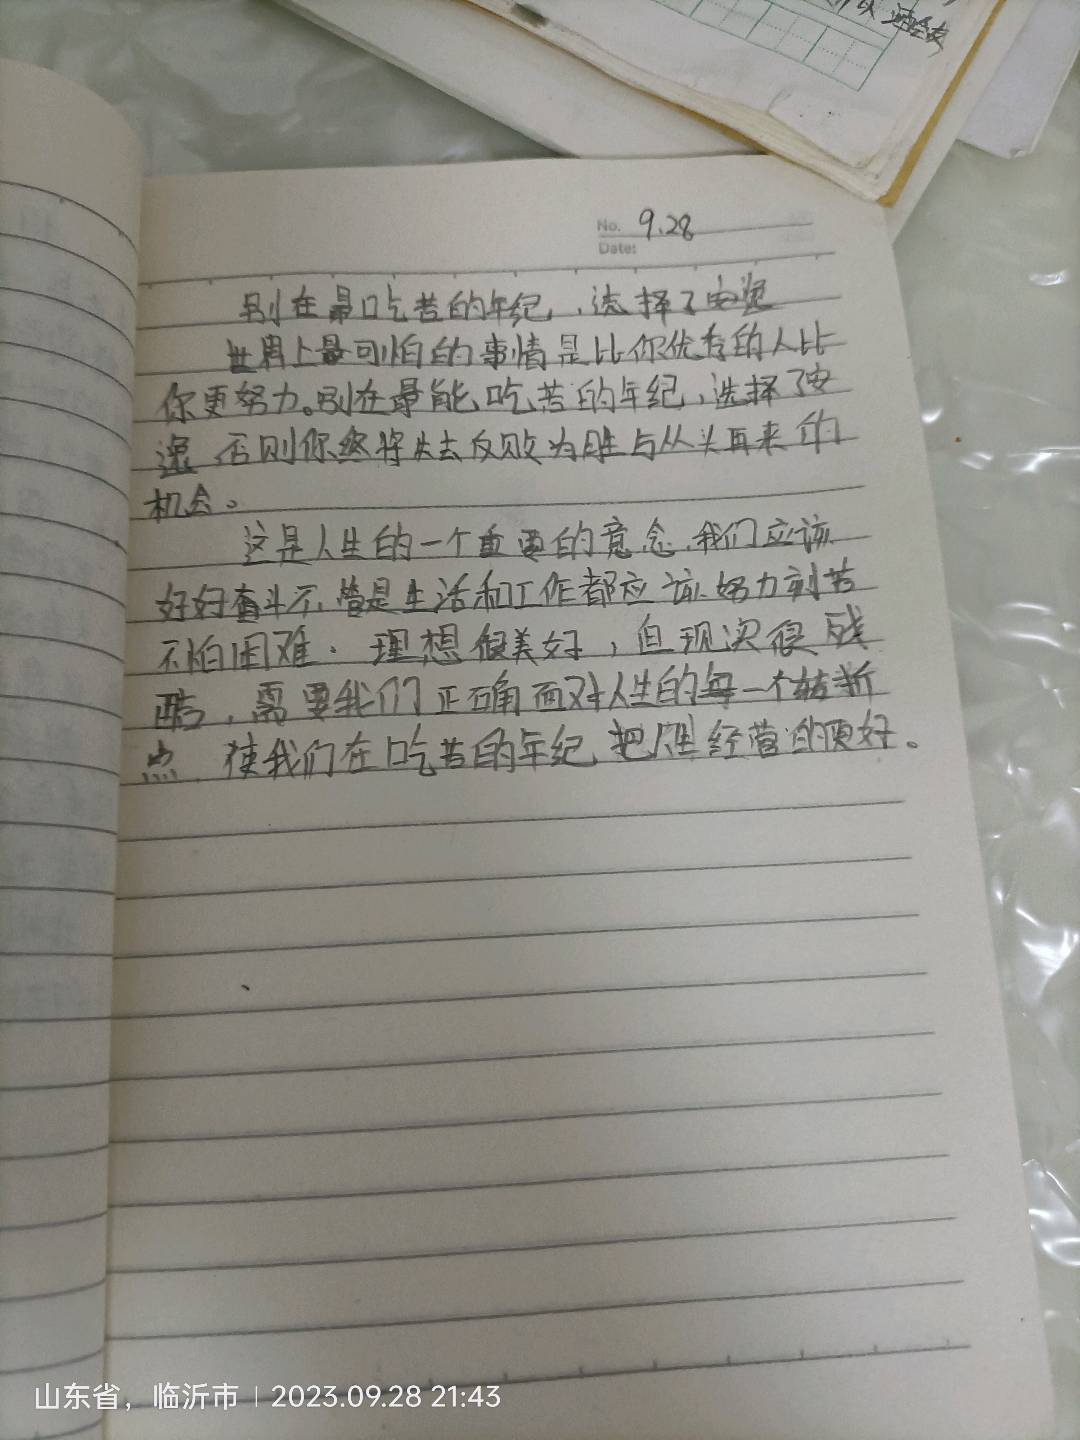 以 速给友
No. 9.28
Date:
别在最吃苦的年纪,选择了安逸
世界上最可怕的事情是比你优秀的人比
你更努力。别在最能吃苦的年纪,选择了安
逸 否则你终将失去反败为胜与从头再来的
机会。
这是人生的一个重要的意念,我们应该
好好奋斗不管是生活和工作都应该努力刻苦
不怕困难. 理想很美好,但现实很残
酷,需要我们正确面对人生的每一个转折
点 使我们在吃苦的年纪 把人生经营的更好。
山东省,临沂市 | 2023.09.28 21:43